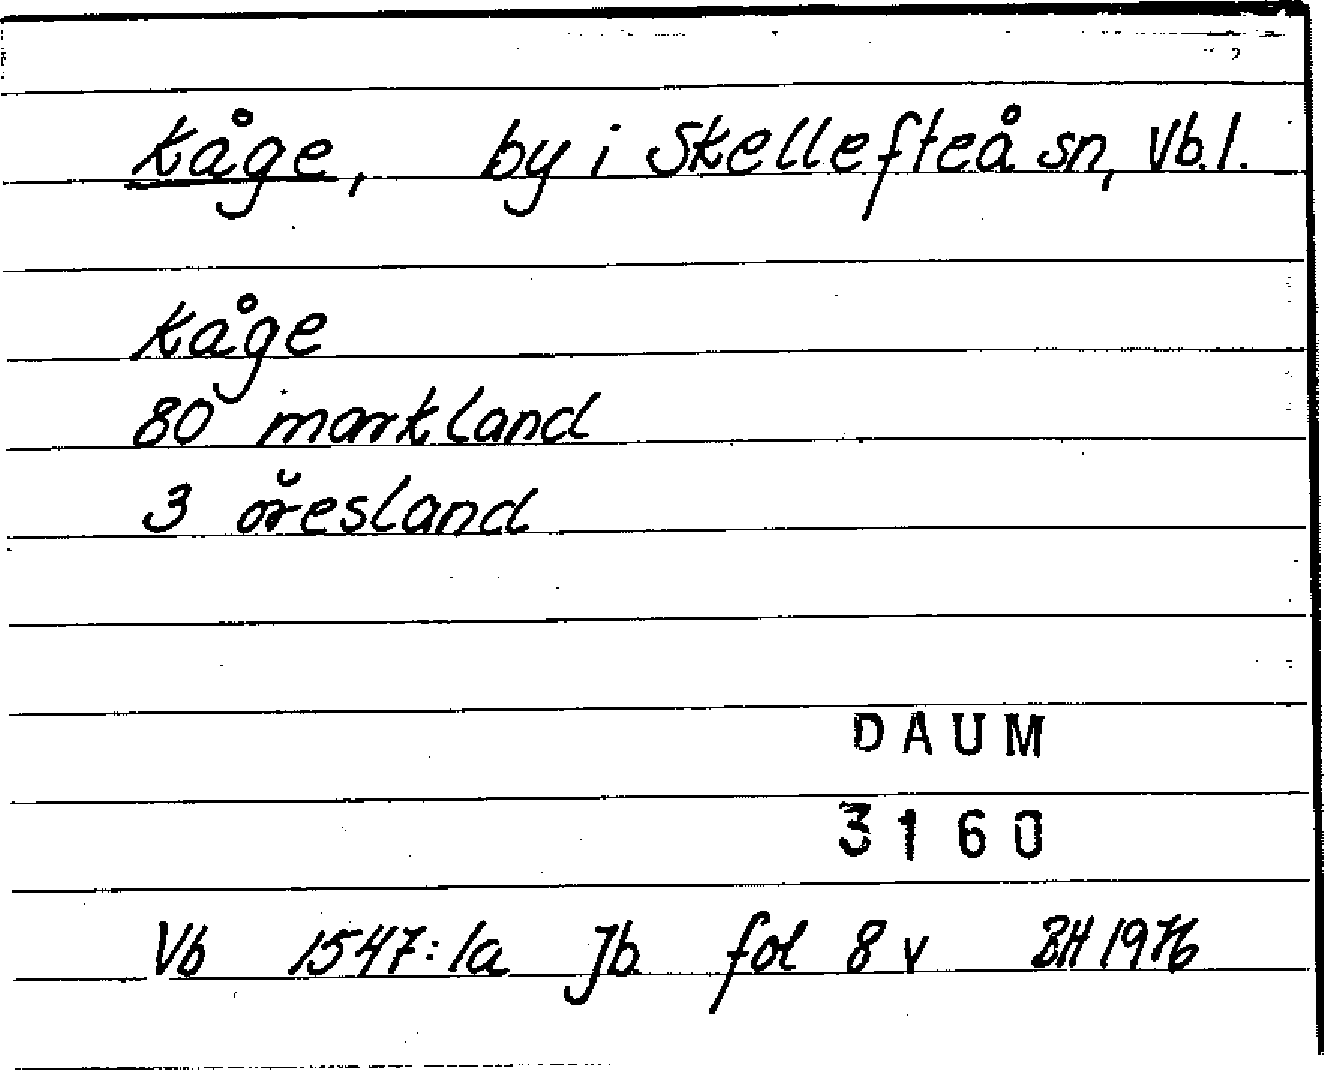 Kåge, by i Skellefteå sn, Vb.l.
Kåge
80 markland
3 öresland
DAUM
3160
Vb 1547:1a Jb fol 8 v BH 1976